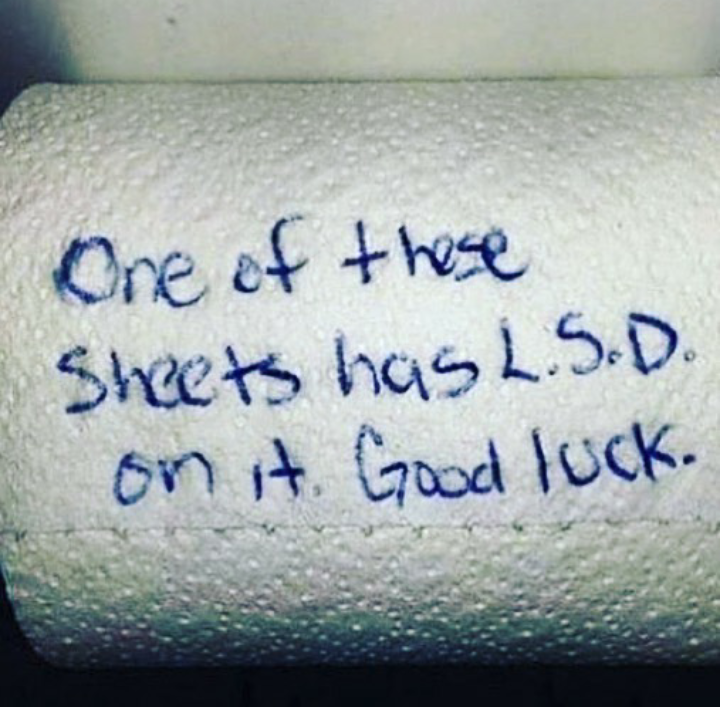 One of these
Sheets has L.S.D.
on it. Good luck.